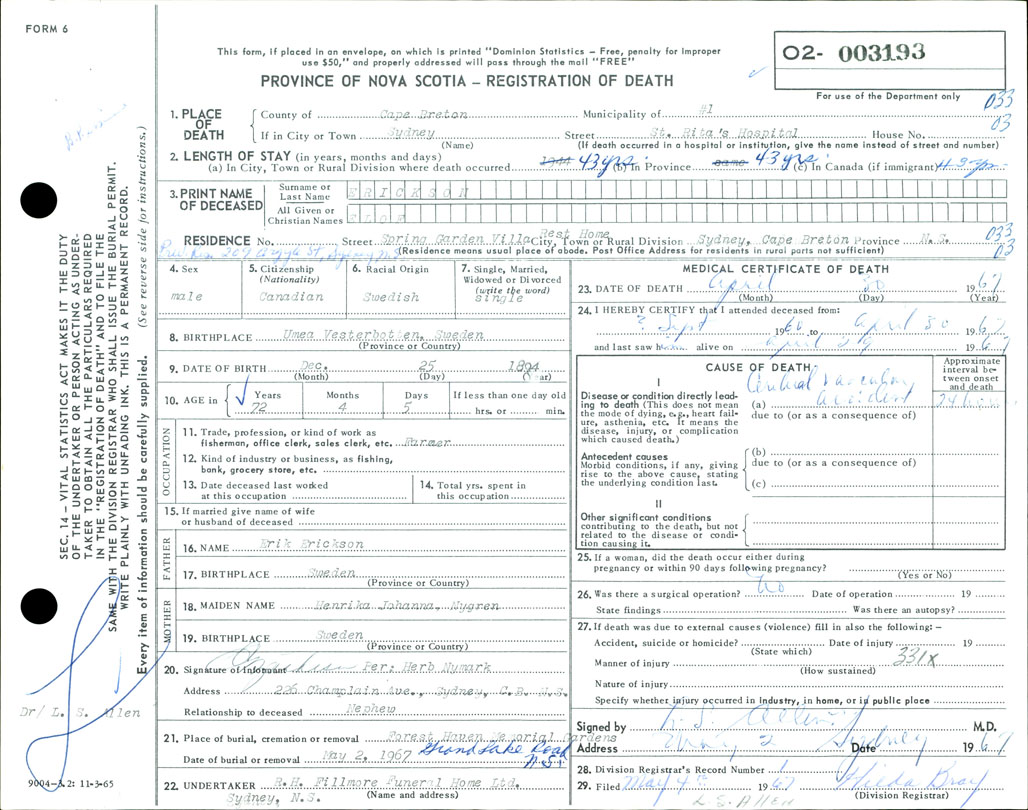 FORM 6
This form, if placed in an envelope, on which is printed "Dominion Statistics – Free, penalty for improper
use $50," and properly addressed will pass through the mail "FREE"
PROVINCE OF NOVA SCOTIA – REGISTRATION OF DEATH
02- 003193
For use of the Department only
033
03
1. PLACE OF DEATH
County of Cape Breton Municipality of #1
If in City or Town Sydney Street St. Rita's Hospital House No.
(Name) (If death occurred in a hospital or institution, give the name instead of street and number)
2. LENGTH OF STAY (in years, months and days)
(a) In City, Town or Rural Division where death occurred 1944 43 yrs. (b) In Province same 43 yrs. (c) In Canada (if immigrant) 43 yrs.
3. PRINT NAME OF DECEASED
Surname or Last Name ERICKSON
All Given or Christian Names ELOF
RESIDENCE No. Street Spring Garden Villa Rest Home City, Town or Rural Division Sydney, Cape Breton Province N.S.
033
03
(Residence means usual place of abode. Post Office Address for residents in rural parts not sufficient)
4. Sex
male
5. Citizenship
(Nationality)
Canadian
6. Racial Origin
Swedish
7. Single, Married, Widowed or Divorced
(write the word)
single
8. BIRTHPLACE Umea Vesterbotten, Sweden
(Province or Country)
9. DATE OF BIRTH Dec. 25 1894
(Month) (Day) (Year)
10. AGE in
Years Months Days If less than one day old
72 4 5 hrs. or min.
OCCUPATION
11. Trade, profession, or kind of work as
fisherman, office clerk, sales clerk, etc. Farmer
12. Kind of industry or business, as fishing,
bank, grocery store, etc.
13. Date deceased last worked
at this occupation
14. Total yrs. spent in
this occupation
15. If married give name of wife
or husband of deceased
FATHER
16. NAME Erik Erickson
17. BIRTHPLACE Sweden
(Province or Country)
MOTHER
18. MAIDEN NAME Henrika Johanna, Nygren
19. BIRTHPLACE Sweden
(Province or Country)
20. Signature of Informant Per: Herb Nymark
Address 226 Champlain Ave., Sydney, C.B. N.S.
Relationship to deceased Nephew
21. Place of burial, cremation or removal Forest Haven Memorial Gardens
Date of burial or removal May 2, 1967 Grand Lake Road N.S.
22. UNDERTAKER R.H. Fillmore Funeral Home Ltd.
Sydney, N.S. (Name and address)
MEDICAL CERTIFICATE OF DEATH
23. DATE OF DEATH April 30 1967
(Month) (Day) (Year)
24. I HEREBY CERTIFY that I attended deceased from:
? Sept 1960 to April 30 1967
and last saw him alive on April 29 1967
CAUSE OF DEATH
Approximate interval between onset and death
I
Disease or condition directly leading to death (This does not mean the mode of dying, e.g., heart failure, asthenia, etc. It means the disease, injury, or complication which caused death.)
(a) Cerebral Vascular accident 24 hours
due to (or as a consequence of)
Antecedent causes
Morbid conditions, if any, giving rise to the above cause, stating the underlying condition last.
(b)
due to (or as a consequence of)
(c)
II
Other significant conditions
contributing to the death, but not related to the disease or condition causing it.
25. If a woman, did the death occur either during
pregnancy or within 90 days following pregnancy?
(Yes or No)
26. Was there a surgical operation? No Date of operation 19
State findings Was there an autopsy?
27. If death was due to external causes (violence) fill in also the following: –
Accident, suicide or homicide? Date of injury 19
(State which)
Manner of injury 331X
(How sustained)
Nature of injury
Specify whether injury occurred in industry, in home, or in public place
Signed by L. S. Allen M.D.
Address Sydney Date 1967
28. Division Registrar's Record Number 1
29. Filed May 4th 1967 Hilda Bray
(Division Registrar)
L.S. ALLEN
SEC. 14 – VITAL STATISTICS ACT MAKES IT THE DUTY
OF THE UNDERTAKER OR PERSON ACTING AS UNDER-
TAKER TO OBTAIN ALL THE PARTICULARS REQUIRED
IN THE "REGISTRATION OF DEATH" AND TO FILE THE
SAME WITH THE DIVISION REGISTRAR WHO SHALL ISSUE THE BURIAL PERMIT.
WRITE PLAINLY WITH UNFADING INK. THIS IS A PERMANENT RECORD.
Every item of information should be carefully supplied. (See reverse side for instructions.)
Dr/ L. S. Allen
9004-3.2: 11-3-65